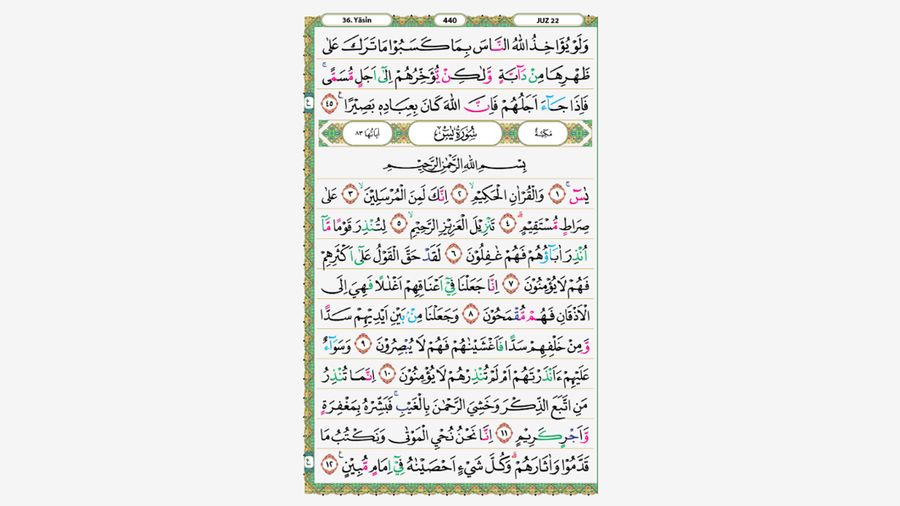 36. Yāsin 440 JUZ 22
وَلَوْ يُؤَاخِذُ اللّٰهُ النَّاسَ بِمَا كَسَبُوْا مَا تَرَكَ عَلٰى
ظَهْرِهَا مِنْ دَاۤبَّةٍ وَّلٰكِنْ يُّؤَخِّرُهُمْ اِلٰٓى اَجَلٍ مُّسَمًّىۚ
فَاِذَا جَاۤءَ اَجَلُهُمْ فَاِنَّ اللّٰهَ كَانَ بِعِبَادِهٖ بَصِيْرًا ࣖ ٤٥
مَكِّيَّةٌ سُوْرَةُ يٰسۤ اٰيَاتُهَا ٨٣
بِسْمِ اللّٰهِ الرَّحْمٰنِ الرَّحِيْمِ
يٰسۤۚ ١ وَالْقُرْاٰنِ الْحَكِيْمِۙ ٢ اِنَّكَ لَمِنَ الْمُرْسَلِيْنَۙ ٣ عَلٰى
صِرَاطٍ مُّسْتَقِيْمٍۗ ٤ تَنْزِيْلَ الْعَزِيْزِ الرَّحِيْمِۙ ٥ لِتُنْذِرَ قَوْمًا مَّآ
اُنْذِرَ اٰبَاۤؤُهُمْ فَهُمْ غٰفِلُوْنَ ٦ لَقَدْ حَقَّ الْقَوْلُ عَلٰٓى اَكْثَرِهِمْ
فَهُمْ لَا يُؤْمِنُوْنَ ٧ اِنَّا جَعَلْنَا فِيْٓ اَعْنَاقِهِمْ اَغْلٰلًا فَهِيَ اِلَى
الْاَذْقَانِ فَهُمْ مُّقْمَحُوْنَ ٨ وَجَعَلْنَا مِنْۢ بَيْنِ اَيْدِيْهِمْ سَدًّا
وَّمِنْ خَلْفِهِمْ سَدًّا فَاَغْشَيْنٰهُمْ فَهُمْ لَا يُبْصِرُوْنَ ٩ وَسَوَاۤءٌ
عَلَيْهِمْ ءَاَنْذَرْتَهُمْ اَمْ لَمْ تُنْذِرْهُمْ لَا يُؤْمِنُوْنَ ١٠ اِنَّمَا تُنْذِرُ
مَنِ اتَّبَعَ الذِّكْرَ وَخَشِيَ الرَّحْمٰنَ بِالْغَيْبِۚ فَبَشِّرْهُ بِمَغْفِرَةٍ
وَّاَجْرٍ كَرِيْمٍ ١١ اِنَّا نَحْنُ نُحْيِ الْمَوْتٰى وَنَكْتُبُ مَا
قَدَّمُوْا وَاٰثَارَهُمْۗ وَكُلَّ شَيْءٍ اَحْصَيْنٰهُ فِيْٓ اِمَامٍ مُّبِيْنٍ ࣖ ١٢